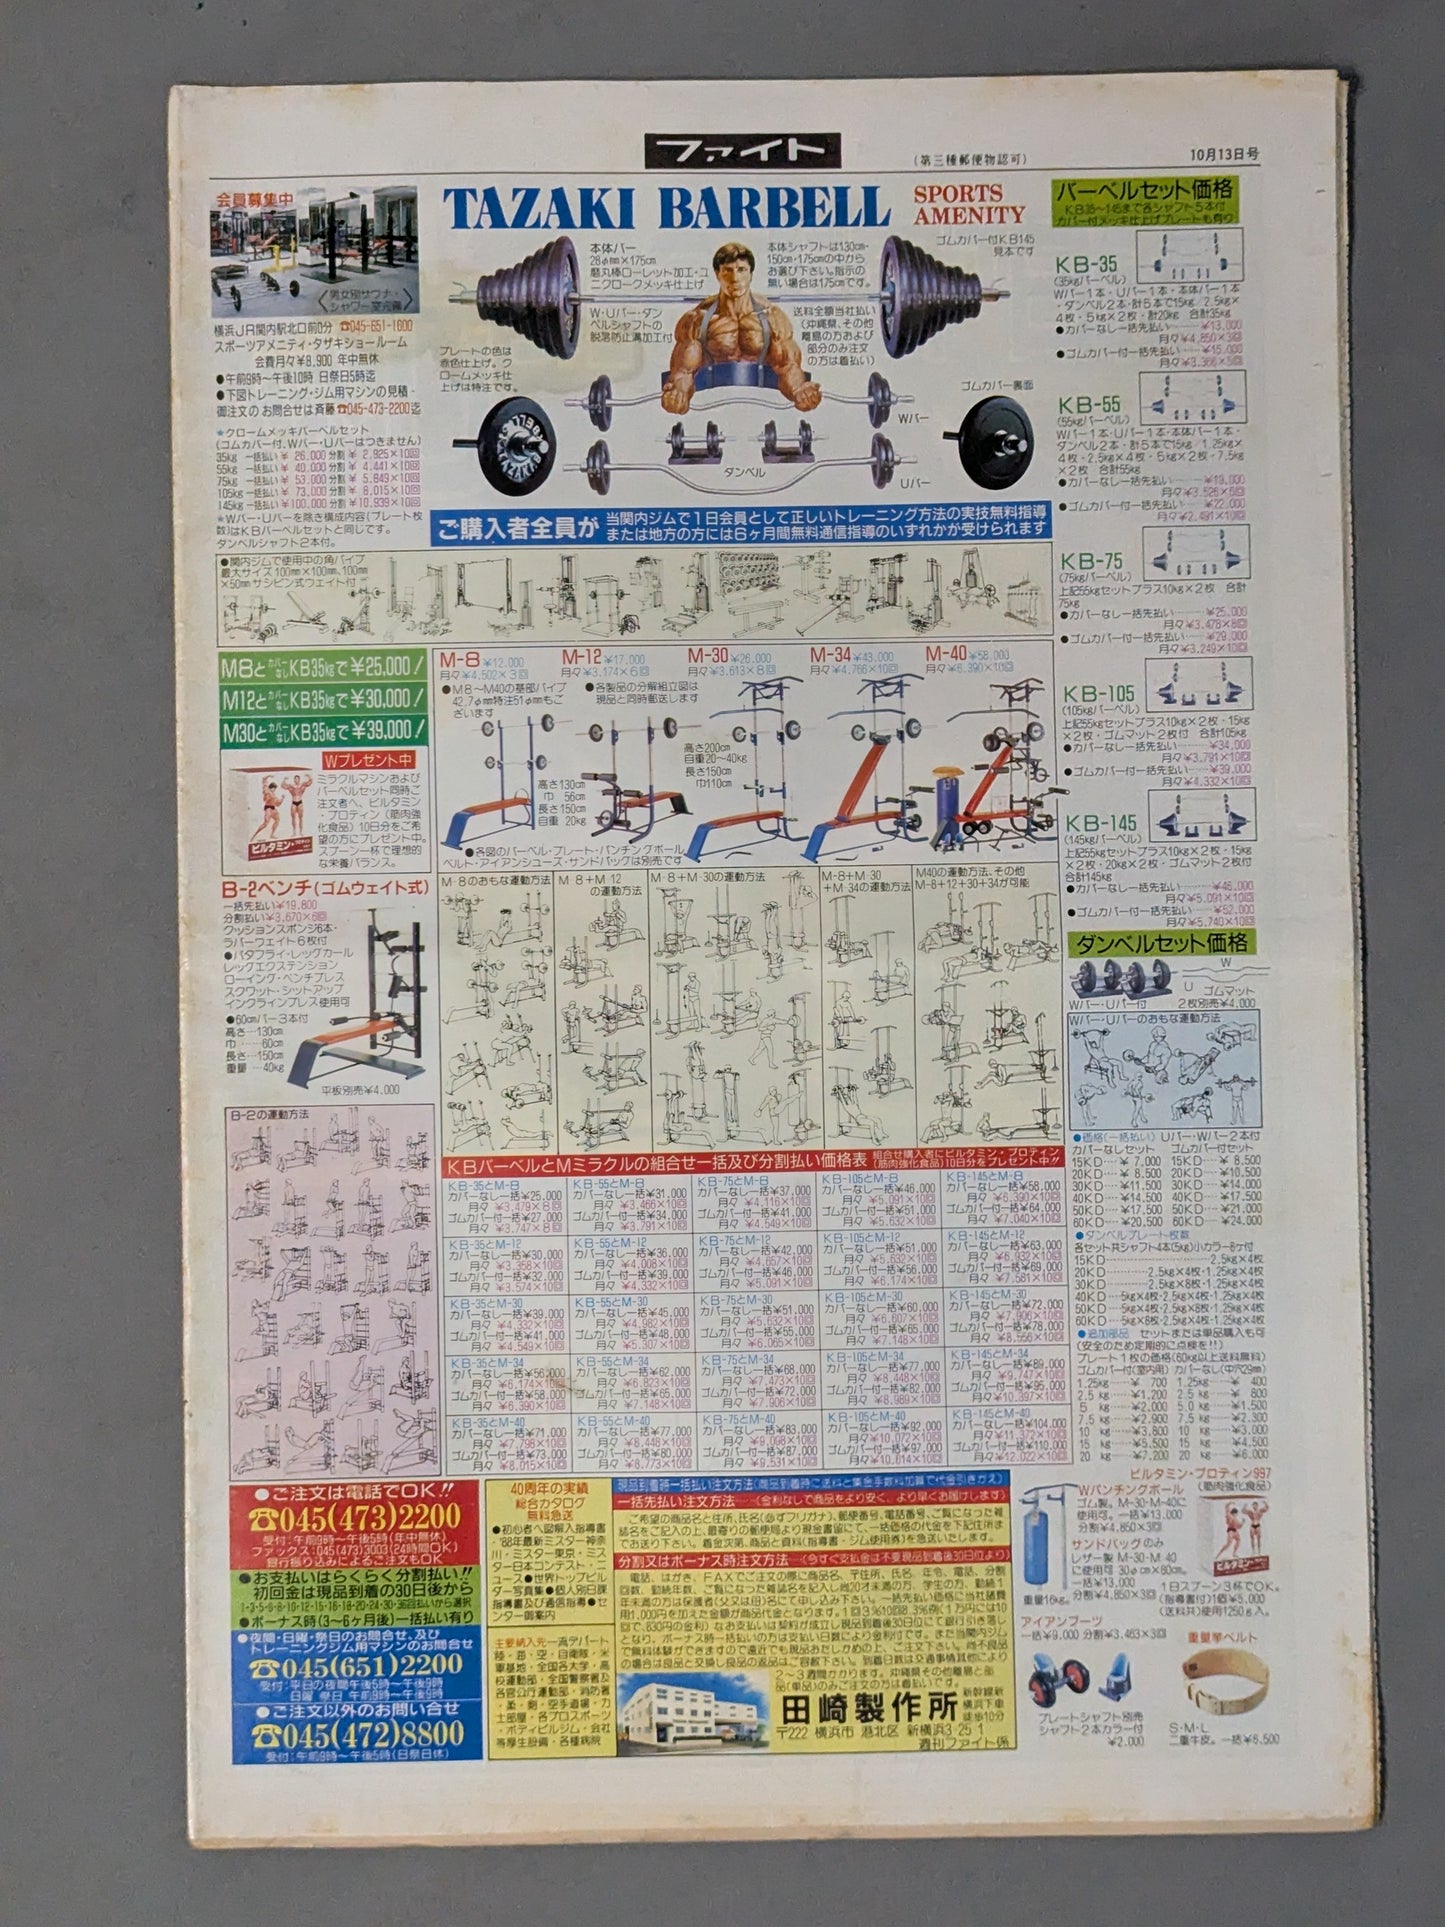 ファイト
(第三種郵便物認可)
10月13日号
会員募集中
男女別サウナ・
シャワー室完備
横浜JR関内駅北口前0分 ☎045-651-1600
スポーツアメニティ・タザキショールーム
会費月々¥8,900 年中無休
●午前9時〜午後10時 日祭日5時迄
●下図トレーニング・ジム用マシンの見積・
御注文のお問合せは斉藤☎045-473-2200迄
★クロームメッキバーベルセット
(ゴムカバー付、Wバー・Uバーはつきません)
35kg 一括払い¥ 26,000 分割¥ 2,925×10回
55kg 一括払い¥ 40,000 分割¥ 4,441×10回
75kg 一括払い¥ 53,000 分割¥ 5,849×10回
105kg 一括払い¥ 73,000 分割¥ 8,015×10回
145kg 一括払い¥100,000 分割¥10,939×10回
★Wバー・Uバーを除き構成内容(プレート枚
数)はKBバーベルセットと同じです。
ダンベルシャフト2本付。
TAZAKI BARBELL
SPORTS
AMENITY
本体バー
28φmm×175cm
磨丸棒ローレット加工・ユ
ニクロークメッキ仕上げ
W・Uバー・ダン
ベルシャフトの
脱落防止溝加工付
本体シャフトは130cm・
150cm・175cmの中から
お選び下さい。指示の
無い場合は175cmです。
送料全額当社払い
(沖縄県、その他
離島の方および
部分のみ注文
の方は着払い)
ゴムカバー付KB145
見本です
プレートの色は
赤色仕上げ。ク
ロームメッキ仕
上げは特注です。
ゴムカバー裏面
Wバー
ダンベル
Uバー
ご購入者全員が
当関内ジムで1日会員として正しいトレーニング方法の実技無料指導
または地方の方には6ヶ月間無料通信指導のいずれかが受けられます
●関内ジムで使用中の角パイプ
最大サイズ100mm×100mm、100mm
×50mmサシピン式ウェイト付
バーベルセット価格
KB35〜145まで各シャフト5本付
カバー付メッキ仕上げプレートも有り
KB-35
(35kgバーベル)
Wバー1本・Uバー1本・本体バー1本
・ダンベル2本・計5本で15kg/2.5kg×
4枚・5kg×2枚・計20kg 合計35kg
●カバーなし一括先払い……¥13,000
月々¥4,850×3回
●ゴムカバー付一括先払い……¥15,000
月々¥3,366×5回
KB-55
(55kgバーベル)
Wバー1本・Uバー1本・本体バー1本・
ダンベル2本・計5本で15kg/1.25kg×
4枚・2.5kg×4枚・5kg×2枚・7.5kg
×2枚 合計55kg
●カバーなし一括先払い……¥19,000
月々¥3,526×6回
●ゴムカバー付一括先払い……¥22,000
月々¥2,491×10回
KB-75
(75kgバーベル)
上記55kgセットプラス10kg×2枚 合計
75kg
●カバーなし一括先払い……¥25,000
月々¥3,478×8回
●ゴムカバー付一括先払い……¥29,000
月々¥3,249×10回
KB-105
(105kgバーベル)
上記55kgセットプラス10kg×2枚・15kg
×2枚・ゴムマット2枚付 合計105kg
●カバーなし一括先払い……¥34,000
月々¥3,791×10回
●ゴムカバー付一括先払い……¥39,000
月々¥4,332×10回
KB-145
(145kgバーベル)
上記55kgセットプラス10kg×2枚・15kg
×2枚・20kg×2枚・ゴムマット2枚付
合計145kg
●カバーなし一括先払い……¥46,000
月々¥5,091×10回
●ゴムカバー付一括先払い……¥52,000
月々¥5,740×10回
M8とカバーなしKB35kgで¥25,000!
M12とカバーなしKB35kgで¥30,000!
M30とカバーなしKB35kgで¥39,000!
Wプレゼント中
ミラクルマシンおよび
バーベルセット同時ご
注文者へ、ビルタミン
・プロティン(筋肉強
化食品)10日分をご希
望の方にプレゼント中。
スプーン一杯で理想的
な栄養バランス。
M-8 ¥12,000
月々¥4,502×3回
M-12 ¥17,000
月々¥3,174×6回
M-30 ¥26,000
月々¥3,613×8回
M-34 ¥43,000
月々¥4,766×10回
M-40 ¥58,000
月々¥6,390×10回
●M8〜M40の基部パイプ
42.7φmm特注51φmmもご
ざいます
●各製品の分解組立図は
現品と同時郵送します
高さ130cm
巾 56cm
長さ150cm
自重 20kg
高さ200cm
自重20〜40kg
長さ150cm
巾110cm
●各図のバーベル・プレート・パンチングボール
ベルト・アイアンシューズ・サンドバッグは別売です
B-2ベンチ(ゴムウェイト式)
一括先払い¥19,800
分割払い¥3,670×6回
クッションスポンジ6本・
ラバーウェイト6枚付
●バタフライ・レッグカール
レッグエクステンション
ローイング・ベンチプレス
スクワット・シットアップ
インクラインプレス使用可
●60cmバー3本付
高さ…130cm
巾……60cm
長さ…150cm
重量…40kg
平板別売¥4,000
B-2の運動方法
M-8のおもな運動方法
M-8+M-12
の運動方法
M-8+M-30の運動方法
M-8+M-30
+M-34の運動方法
M40の運動方法、その他
M-8+12+30+34が可能
ダンベルセット価格
W
U ゴムマット
Wバー・Uバー付 2枚別売¥4,000
Wバー・Uバーのおもな運動方法
●価格(一括払い) Uバー・Wバー2本付
カバーなしセット ゴムカバー付セット
15KD…¥ 7,000 15KD…¥ 8,500
20KD…¥ 8,500 20KD…¥10,500
30KD…¥11,500 30KD…¥14,000
40KD…¥14,500 40KD…¥17,500
50KD…¥17,500 50KD…¥21,000
60KD…¥20,500 60KD…¥24,000
●ダンベルプレート枚数
各セット共シャフト4本(5kg)小カラー8ヶ付
15KD……2.5kg×4枚
20KD……2.5kg×4枚・1.25kg×4枚
30KD……2.5kg×8枚・1.25kg×4枚
40KD…5kg×4枚・2.5kg×4枚・1.25kg×4枚
50KD…5kg×4枚・2.5kg×8枚・1.25kg×4枚
60KD…5kg×8枚・2.5kg×4枚・1.25kg×4枚
●追加部品 セットまたは単品購入も可
(安全のため定期的に点検を!!)
プレート1枚の価格(60kg以上送料無料)
ゴムカバー付(室内用) カバーなし(中穴29mm)
1.25kg…¥ 700 1.25kg…¥ 400
2.5 kg…¥1,200 2.5 kg…¥ 800
5 kg…¥2,000 5.0 kg…¥1,500
7.5 kg…¥2,900 7.5 kg…¥2,300
10 kg…¥3,800 10 kg…¥3,000
15 kg…¥5,500 15 kg…¥4,500
20 kg…¥7,200 20 kg…¥6,000
KBバーベルとMミラクルの組合せ一括及び分割払い価格表
組合せ購入者にビルタミン・プロティン
(筋肉強化食品)10日分をプレゼント中!!
KB-35とM-8
カバーなし一括¥25,000
月々 ¥3,479×8回
ゴムカバー付一括¥27,000
月々 ¥3,747×8回
KB-55とM-8
カバーなし一括¥31,000
月々 ¥3,466×10回
ゴムカバー付一括¥34,000
月々 ¥3,791×10回
KB-75とM-8
カバーなし一括¥37,000
月々 ¥4,116×10回
ゴムカバー付一括¥41,000
月々 ¥4,549×10回
KB-105とM-8
カバーなし一括¥46,000
月々 ¥5,091×10回
ゴムカバー付一括¥51,000
月々 ¥5,632×10回
KB-145とM-8
カバーなし一括¥58,000
月々 ¥6,390×10回
ゴムカバー付一括¥64,000
月々 ¥7,040×10回
KB-35とM-12
カバーなし一括¥30,000
月々 ¥3,358×10回
ゴムカバー付一括¥32,000
月々 ¥3,574×10回
KB-55とM-12
カバーなし一括¥36,000
月々 ¥4,008×10回
ゴムカバー付一括¥39,000
月々 ¥4,332×10回
KB-75とM-12
カバーなし一括¥42,000
月々 ¥4,657×10回
ゴムカバー付一括¥46,000
月々 ¥5,091×10回
KB-105とM-12
カバーなし一括¥51,000
月々 ¥5,632×10回
ゴムカバー付一括¥56,000
月々 ¥6,174×10回
KB-145とM-12
カバーなし一括¥63,000
月々 ¥6,932×10回
ゴムカバー付一括¥69,000
月々 ¥7,581×10回
KB-35とM-30
カバーなし一括¥39,000
月々 ¥4,332×10回
ゴムカバー付一括¥41,000
月々 ¥4,549×10回
KB-55とM-30
カバーなし一括¥45,000
月々 ¥4,982×10回
ゴムカバー付一括¥48,000
月々 ¥5,307×10回
KB-75とM-30
カバーなし一括¥51,000
月々 ¥5,632×10回
ゴムカバー付一括¥55,000
月々 ¥6,065×10回
KB-105とM-30
カバーなし一括¥60,000
月々 ¥6,607×10回
ゴムカバー付一括¥65,000
月々 ¥7,148×10回
KB-145とM-30
カバーなし一括¥72,000
月々 ¥7,906×10回
ゴムカバー付一括¥78,000
月々 ¥8,556×10回
KB-35とM-34
カバーなし一括¥56,000
月々 ¥6,174×10回
ゴムカバー付一括¥58,000
月々 ¥6,390×10回
KB-55とM-34
カバーなし一括¥62,000
月々 ¥6,823×10回
ゴムカバー付一括¥65,000
月々 ¥7,148×10回
KB-75とM-34
カバーなし一括¥68,000
月々 ¥7,473×10回
ゴムカバー付一括¥72,000
月々 ¥7,906×10回
KB-105とM-34
カバーなし一括¥77,000
月々 ¥8,448×10回
ゴムカバー付一括¥82,000
月々 ¥8,989×10回
KB-145とM-34
カバーなし一括¥89,000
月々 ¥9,747×10回
ゴムカバー付一括¥95,000
月々 ¥10,397×10回
KB-35とM-40
カバーなし一括¥71,000
月々 ¥7,798×10回
ゴムカバー付一括¥73,000
月々 ¥8,015×10回
KB-55とM-40
カバーなし一括¥77,000
月々 ¥8,448×10回
ゴムカバー付一括¥80,000
月々 ¥8,773×10回
KB-75とM-40
カバーなし一括¥83,000
月々 ¥9,098×10回
ゴムカバー付一括¥87,000
月々 ¥9,531×10回
KB-105とM-40
カバーなし一括¥92,000
月々 ¥10,072×10回
ゴムカバー付一括¥97,000
月々 ¥10,614×10回
KB-145とM-40
カバーなし一括¥104,000
月々 ¥11,372×10回
ゴムカバー付一括¥110,000
月々 ¥12,022×10回
●ご注文は電話でOK!!
☎045(473)2200
受付:午前9時〜午後5時(年中無休)
ファックス:045(473)3003(24時間OK)
銀行振り込みによるご注文もOK
●お支払いはらくらく分割払い!!
初回金は現品到着の30日後から
1・3・5・6・8・10・12・15・16・18・20・24・30・36回払いから選択
●ボーナス時(3〜6ヶ月後)一括払い有り
●夜間・日曜・祭日のお問合せ、及び
トレーニングジム用マシンのお問合せ
☎045(651)2200
受付:平日の夜間午後5時〜午後9時
日曜 祭日 午前9時〜午後9時
●ご注文以外のお問い合せ
☎045(472)8800
受付:午前9時〜午後5時(日祭日休)
40周年の実績
総合カタログ
無料急送
●初心者へ図解入指導書
・'88年最新ミスター神奈
川・ミスター東京・ミス
ター日本コンテスト・ニ
ュース●世界トップビル
ダー写真集●個人別日課
指導書及び通信指導●セ
ンター御案内
主要納入先一流デパート
陸・海・空・自衛隊・米
軍基地・全国各大学・高
校運動部・全国警察署及
各官公庁運動部・消防署
・柔・剣・空手道場・力
士部屋・各プロスポーツ
・ボディビルジム・会社
等厚生設備・各種病院
現品到着時一括払い注文方法(商品到着時に送料と集金手数料加算で代金引きかえ)
一括先払い注文方法……(金利なしで商品をより安く、より早くお届けします)
ご希望の商品名と住所、氏名(必ずフリガナ)、郵便番号、電話番号、ご覧になった雑
誌名をご記入の上、最寄りの郵便局より現金書留にて、一括価格の代金を下記住所ま
でお送り下さい。着金次第、商品と資料(指導書・ジム使用券)を急送いたします。
分割又はボーナス時注文方法……(今すぐ支払金は不要現品到着後30日位より)
電話、はがき、FAXでご注文の際に商品名、〒住所、氏名、年令、電話、分割
回数、勤続年数、ご覧になった雑誌名を記入し尚20才未満の方、学生の方、勤続1
年未満の方は保護者(父又は母)名にて申し込み下さい。
田崎製作所
新幹線新
横浜下車
徒歩10分
〒222 横浜市 港北区 新横浜3-25-1
週刊ファイト係
Wパンチングボール
ゴム製。M-30・M-40に
使用可。一括¥13,000
分割¥4,850×3回
サンドバッグのみ
レザー製 M-30・M-40
に使用可 30φcm×80cm。
一括¥13,000
重量16kg。分割¥4,850×3回
ビルタミン・プロティン997
(筋肉強化食品)
1日スプーン3杯でOK。
(指導書付)1個¥5,000
(送料共)使用1250g入。
アイアンブーツ
一括¥9,000 分割¥3,463×3回
プレートシャフト別売
シャフト2本カラー付
¥2,000
重量挙ベルト
S・M・L
二重牛皮。一括¥6,500